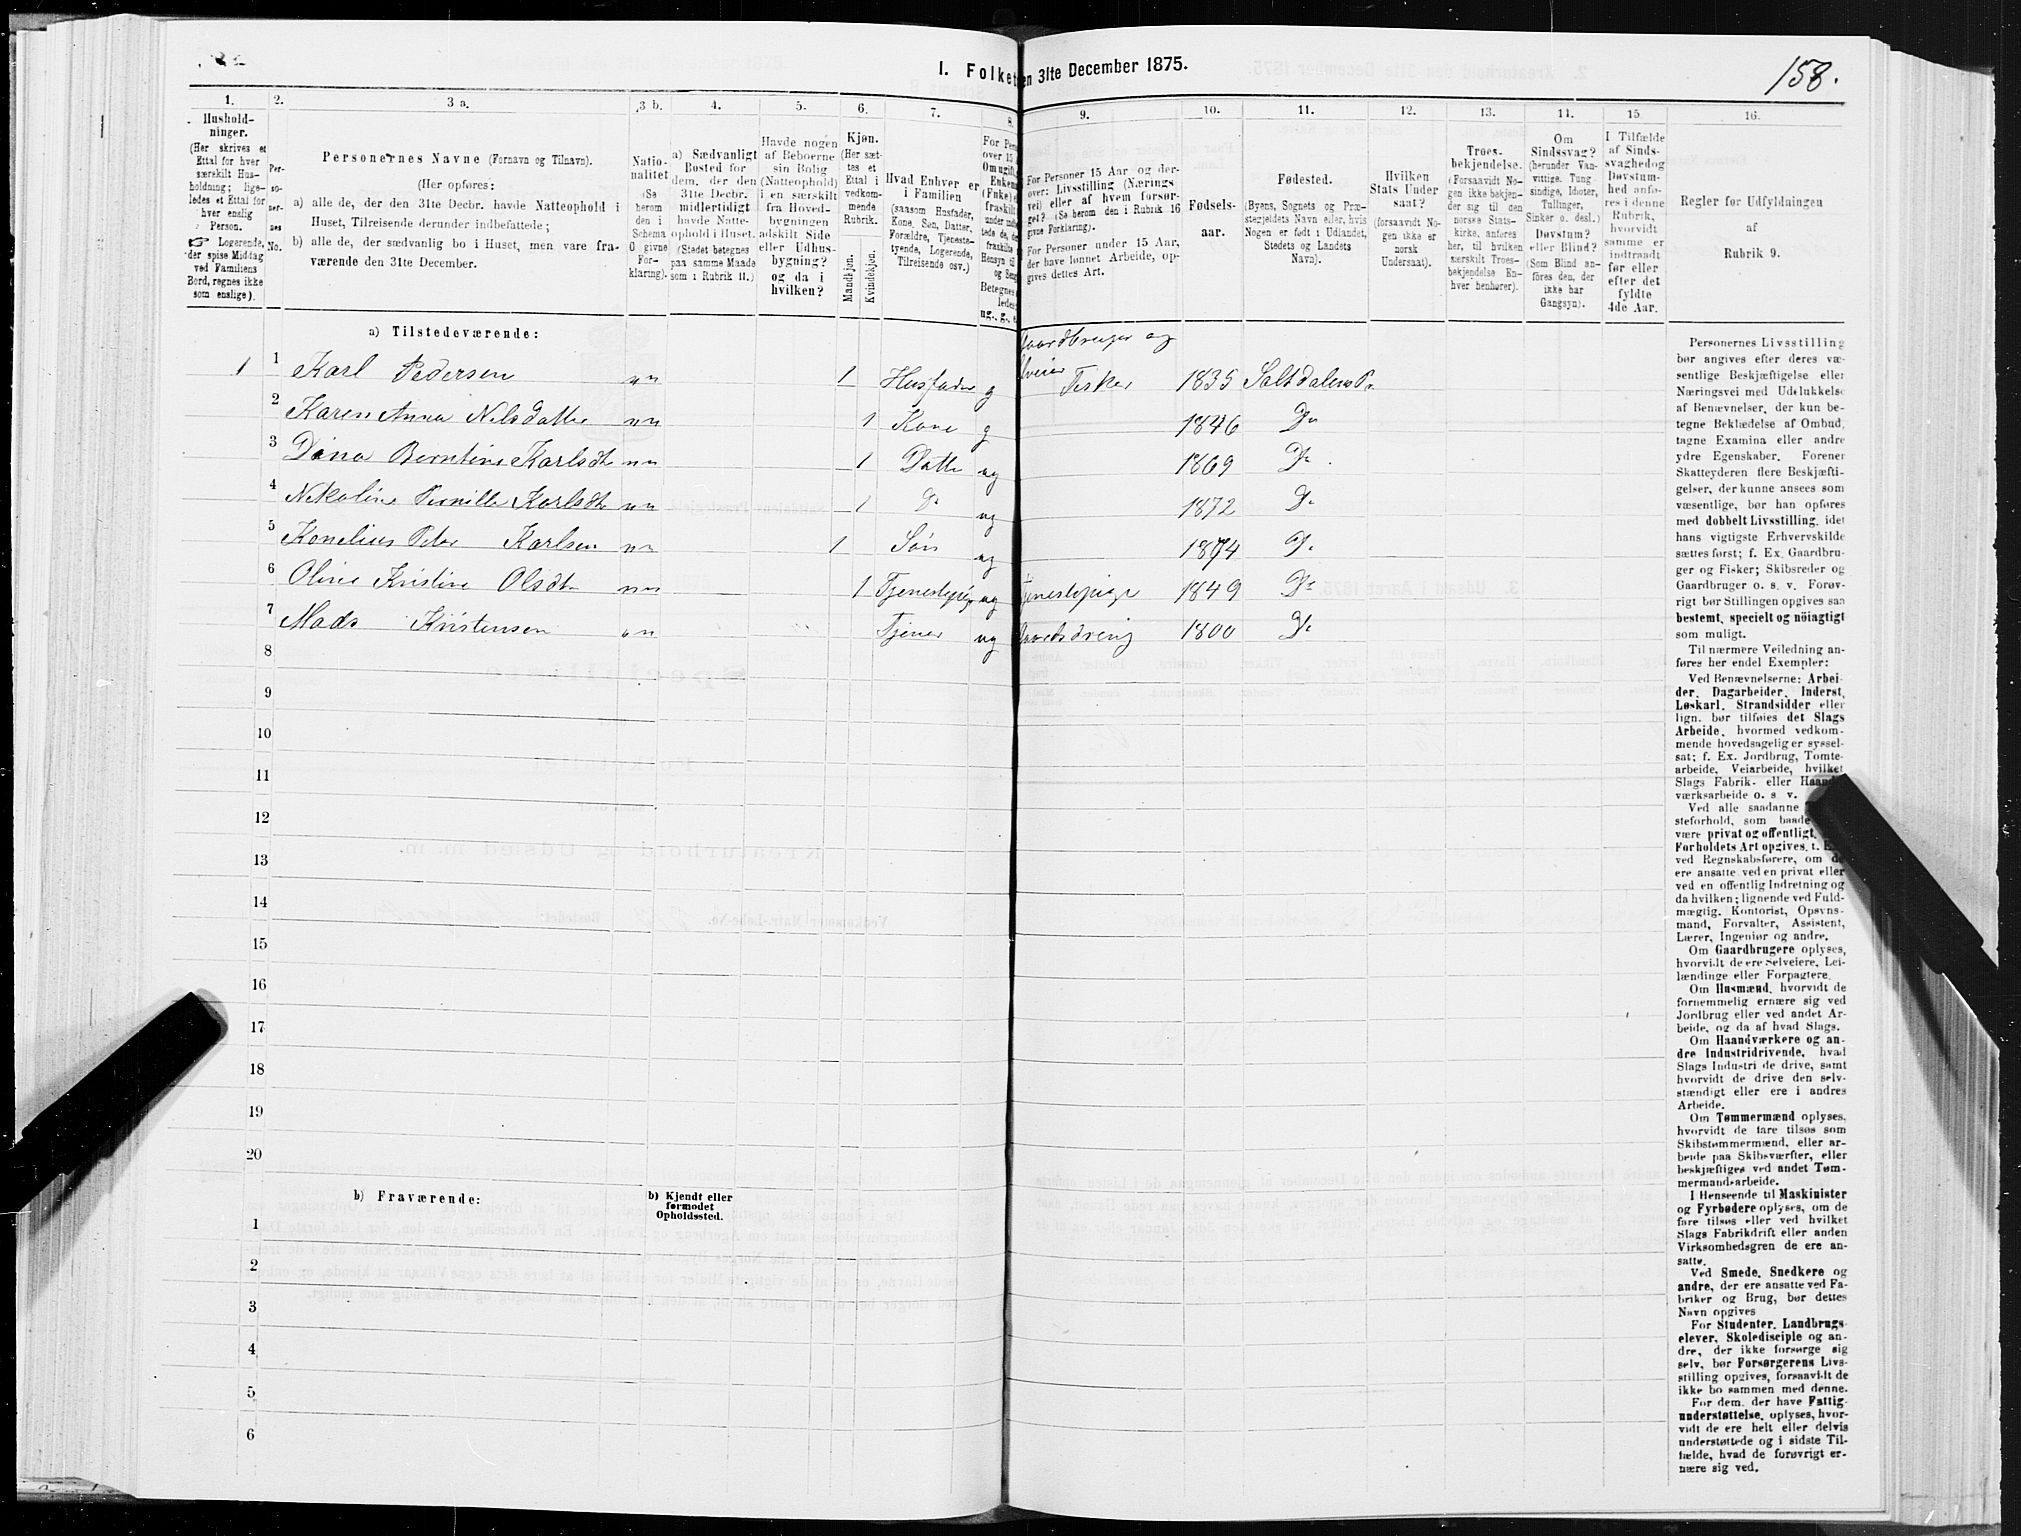 I. Folket en 31te December 1875.
158.
1. 2. 3 a. 3 b. 4. 5. 6. 7. 8. 9. 10. 11. 12. 13. 14. 15 16.
Hushold-
ninger.
(Her skrives et
Ettal for hver
særskilt Hus-
holdning; lige-
ledes et Ettal for
hver enslig
Person.
☞ Logerende,
der spise Middag
ved Familiens
Bord, regnes ikke
som enslige).
Per-
so-
ner-
nes
No.
Personernes Navne (Fornavn og Tilnavn).
(Her opføres:
a) alle de, der den 31te Decbr. havde Natteophold i
Huset, Tilreisende derunder indbefattede;
b) alle de, der sædvanlig bo i Huset, men vare fra-
værende den 31te December.
Natio-
nalitet
(Se
herom
den i
Schema
O givne
For-
klaring).
a) Sædvanligt
Bosted for
dem, der den
31te Decbr.
midlertidigt
havde Natte-
ophold i Huset.
(Stedet betegnes
paa samme Maade
som i Rubrik 11.)
Havde nogen
af Beboerne
sin Bolig
(Natteophold)
i en særskilt
fra Hoved-
bygningen
adskilt Side
eller Udhus-
bygning?
og da i
hvilken?
Kjøn.
(Her sæt-
tes et
Ettal i
vedkom-
mende
Rubrik.
Mandkjøn.
Kvindekjøn.
Hvad Enhver er
i Familien
(saasom Husfader,
Kone, Søn, Datter,
Forældre, Tjeneste-
tyende, Logerende,
Tilreisende osv.)
For Per
over 15
Om ugift,
Enken
(Fnke)
fraskilt
For Personer 15 Aar og der-
over: Livsstilling (Nærings
vei) eller af hvem forsør-
get? (Se herom den i Rubrik 16
givne Forklaring).
For Personer under 15 Aar,
der have lønnet Arbeide, op-
gives dettes Art.
Fødsels-
aar.
Fødested.
(Byens, Sognets og Præ-
stegjeldets Navn eller, hvis
Nogen er født i Udlandet,
Stedets og Landets
Navn).
Hvilken
Stats Under
saat?
(forsaavidt No-
gen ikke er
norsk
Undersaat).
Troes-
bekjendelse.
(Forsaavidt No-
gen ikke bekjen-
der sig til den
norske Stats-
kirke, anføres
her, til hvilken
særskilt Troes-
bekjendelse En-
hver henhører).
Om
Sindssvag?
(herunder Van-
vittige, Tung-
sindige, Idioter,
Tullinger,
Sinker o. desl.)
Døvstum?
eller Blind?
(Som Blind an-
føres den, der
ikke har
Gangsyn).
I Tilfælde
af Sinds-
svaghed og
Døvstum-
hed anfø-
res i denne
Rubrik,
hvorvidt
samme er
indtraadt
før eller
efter det
fyldte
4de Aar.
Regler for Udfyldningen
af
Rubrik 9.
a) Tilstedeværende:
aardbruger og
1 1 Karl Pedersen nn 1 Husfader g Fisker 1835 Saltdalen Pr
2 Karen Anna Nilsdatter nn 1 Kone g 1846 Do
3 Dina Berntine Karlsdt nn 1 Datte ug 1869 Do
4 Nikoline Pernille Karlsdt nn 1 Do ug 1872 Do
5 Konelius Peter Karlsen nn 1 Søn ug 1874 Do
6 Oline Kristine Olsdt nn 1 Tjenestepige ug jenestepige 1849 Do
7 Mads Kristensen nn Tjener ug aardsdreng 1800 Do
8
9
10
11
12
13
14
15
16
17
18
19
20
b) Fraværende:
b) Kjendt eller
formodet
Opholdssted.
1
2
3
4
5
6
Personernes Livsstilling
bør angives efter deres væ-
sentlige Beskjæftigelse eller
Næringsvei med Udelukkelse
af Benævnelser, der kun be-
tegne Beklædelse af Ombud,
tagne Examina eller andre
ydre Egenskaber. Forener
Skatteyderen flere Beskjæfti-
gelser, der kunne ansees som
væsentlige, bør han opføres
med dobbelt Livsstilling, idet
hans vigtigste Erhvervskilde
sættes først; f. Ex. Gaardbru-
ger og Fisker; Skibsreder og
Gaardbruger o. s. v. Forøv-
rigt bør Stillingen opgives saa
bestemt, specielt og nöiagtigt
som muligt.
Til nærmere Veiledning an-
føres her endel Exempler:
Ved Benævnelserne: Arbei-
der, Dagarbeider, Inderst,
Løskarl, Strandsidder eller
lign. bør tilføies det Slags
Arbeide, hvormed vedkom-
mende hovedsagelig er syssel-
sat; f. Ex. Jordbrug, Tomte-
arbeide, Veiarbeide, hvilket
Slags Fabrik- eller Haand-
værksarbeide o. s. v.
Ved alle saadanne
steforhold, som baade
være privat og offentligt,
Forholdets Art opgives, t. E
ved Regnskabsførere, om de
ere ansatte ved en privat eller
ved en offentlig Indretning og
da hvilken; lignende ved Fuld-
mægtig, Kontorist, Opsyns-
mand, Forvalter, Assistent,
Lærer, Ingeniør og andre.
Om Gaardbrugere oplyses,
hvorvidt de ere Selveiere, Lei-
lændinge eller Forpagtere.
Om Husmænd, hvorvidt de
fornemmelig ernære sig ved
Jordbrug eller ved andet Ar-
beide, og da af hvad Slags.
Om Haandværkere og an-
dre Industridrivende, hvad
Slags Industri de drive, samt
hvorvidt de drive den selv-
stændigt eller ere i andres
Arbeide.
Om Tømmermænd oplyses,
hvorvidt de fare tilsøs som
Skibstømmermænd, eller ar-
beide paa Skibsværfter, eller
beskjæftiges ved andet Tøm-
mermandsarbeide.
I Henseende til Maskinister
og Fyrbødere oplyses, om de
fare tilsøs eller ved hvilket
Slags Fabrikdrift eller anden
Virksomhedsgren de ere an-
satte.
Ved Smede, Snedkere og
andre, der ere ansatte ved Fa-
briker og Brug, bør dettes
Navn opgives
For Studenter, Landbrugs
elever, Skoledisciple og an-
dre, der ikke forsørge sig
selv, bør Forsørgerens Livs-
stilling opgives, forsaavidt de
ikke bo sammen med denne.
For dem, der have Fattig
understøttelse, oplyses, hvor-
vidt de ere helt eller delvis
understøttede og i sidste Til-
fælde, hvad de forøvrigt er-
nære sig ved.